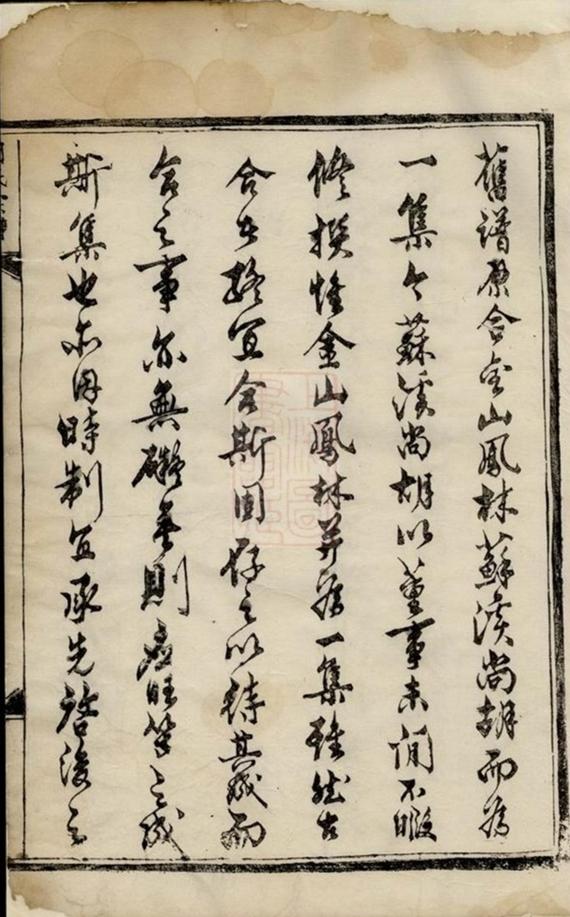 舊譜原合金山鳳林蘇溪尚胡而為
一集今蘇溪尚胡以董事未閒不暇
修撰惟金山鳳林並為一集雖然古
合者終宜合斯固存之以待其成而
合之事亦無礙焉則
斯集也亦因時制宜承先啟後之